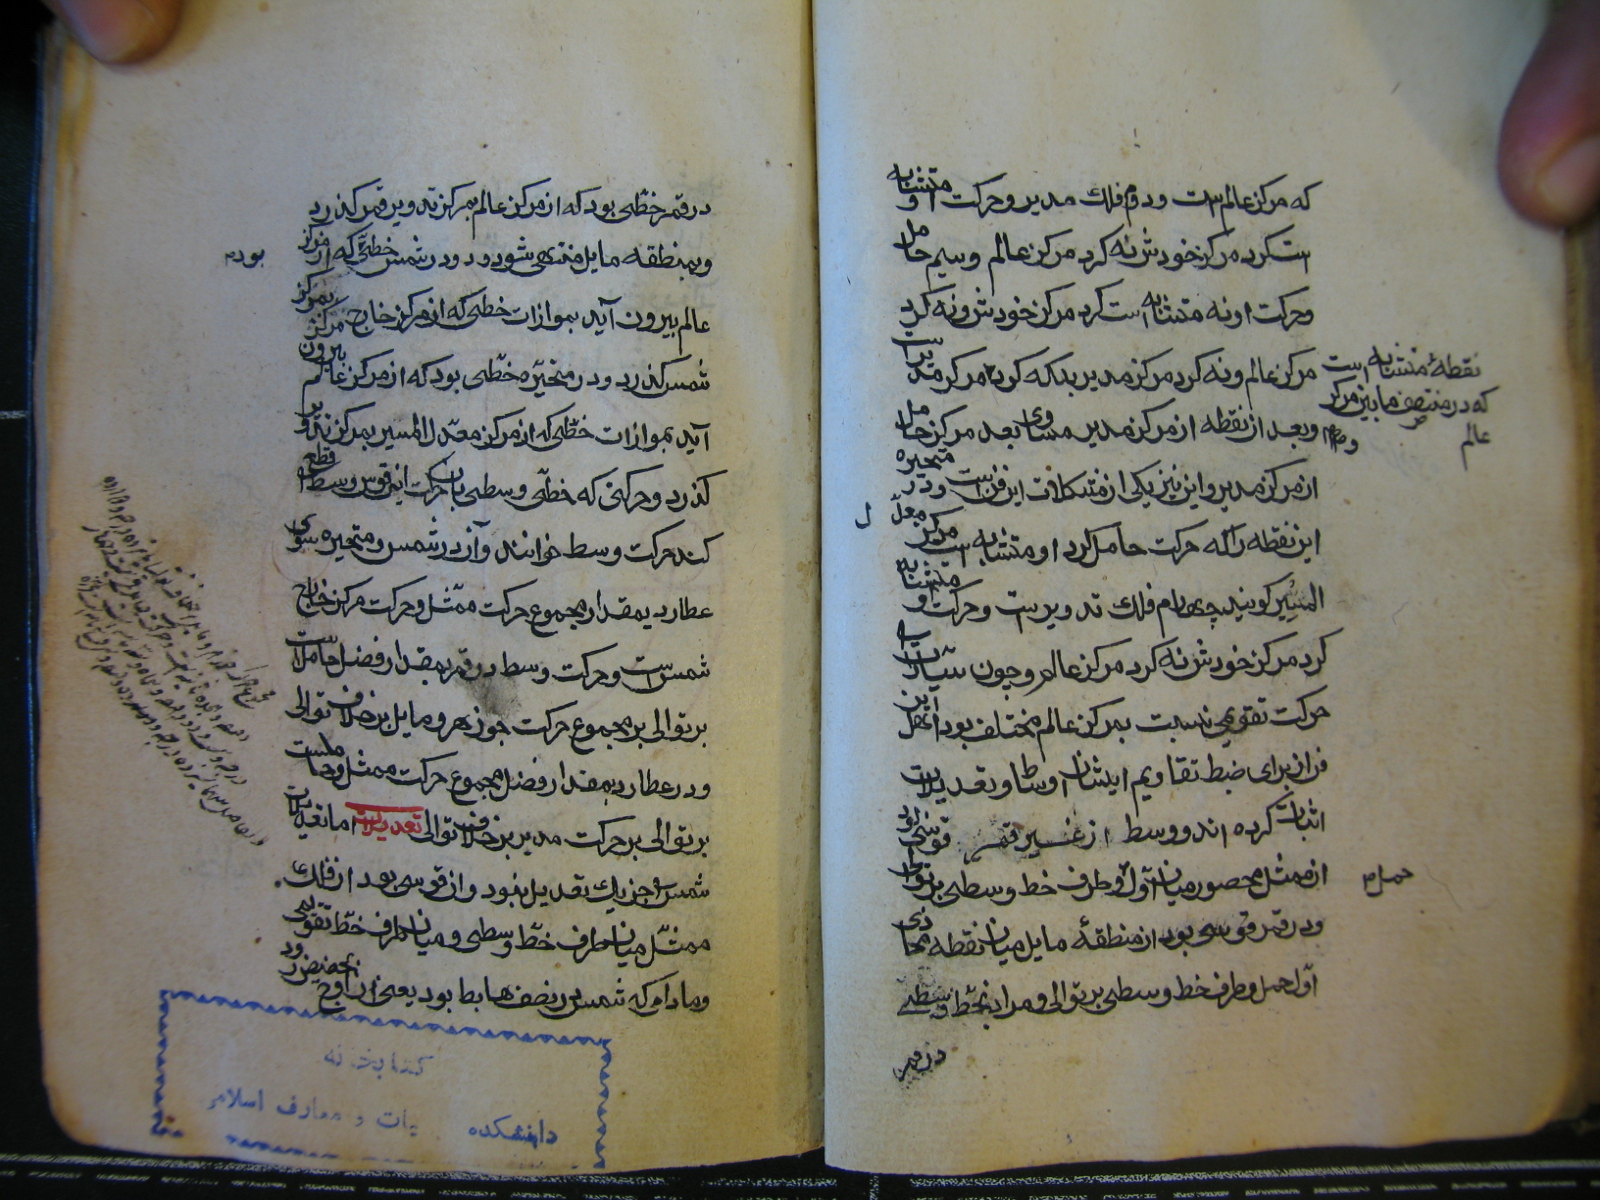 که مرکز عالم است و دوم فلک مدیر و حرکت او متشابه
است کرد مرکز خودش نه کرد مرکز عالم وسیم حامل
و حرکت او نه متشابه است کرد مرکز خودش و نه کرد
مرکز عالم و نه کرد مرکز مدیر بلکه کرد
نقطهٔ متشابه است
که در منتصف مابین مرکز
عالم
و بعد از نقطه از مرکز مدیر مساوی بعد مرکز حامل
از مرکز مدیر و این نیز یکی از مشکلات این فن است و در متحیره
این نقطه را که حرکت حامل کرد او متشابه است مرکز معدل
المسیر کویند چهارم فلک تدویرست و حرکت او متشابه
کرد مرکز خودش نه کرد مرکز عالم و چون سیارات
حرکت تقویمی نسبت بمرکز عالم مختلف بود اهل این
فن از برای ضبط تقاویم ایشان اوساط و تعدیلات
اثبات کرده اند و وسط از غیر قمر قوسی بود
از ممثل محصور میان اول و طرف خط وسطی بر توالی
حمل
و در قمر قوسی بود از منطقهٔ مایل میان نقطه محاذی
اول حمل و طرف خط وسطی بر توالی و مراد بخط وسطی
در قمر
در قمر خطی بود که از مرکز عالم بمرکز تدویر قمر کذرد
و بمنطقه مایل منتهی شود و در شمس خطی که از مرکز
بود
عالم بیرون آید بموازات خطی که از مرکز خارج مرکز بمرکز
شمس کذرد و در متحیره خطی بود که از مرکز عالم بیرون
آید بموازات خطی که از مرکز معدل المسیر بمرکز تدویر
کذرد و حرکتی که خطی وسطی بان حرکت این قوس وسط قطع
کند حرکت وسط خوانند و آن در شمس و متحیره سوی
عطارد بمقدار مجموع حرکت ممثل و حرکت مرکز خارج
شمس است و حرکت وسط در قمر بمقدار فضل حامل است
بر توالی بر مجموع حرکت جوزهر و مایل بر خلاف توالی
و در عطارد بمقدار فضل مجموع حرکت ممثل و حامل است
بر توالی بر حرکت مدیر بر خلاف توالی تعدیلات اما تعدیلات
شمس جز یک تعدیل نبود و ان قوسی بود از فلک
ممثل میان طرف خط وسطی و میان طرف خط تقویمی
و مادام که شمس در نصف هابط بود یعنی از اوج بحضیض رود
کتابخانه
دانشکده یات و معارف اسلامی